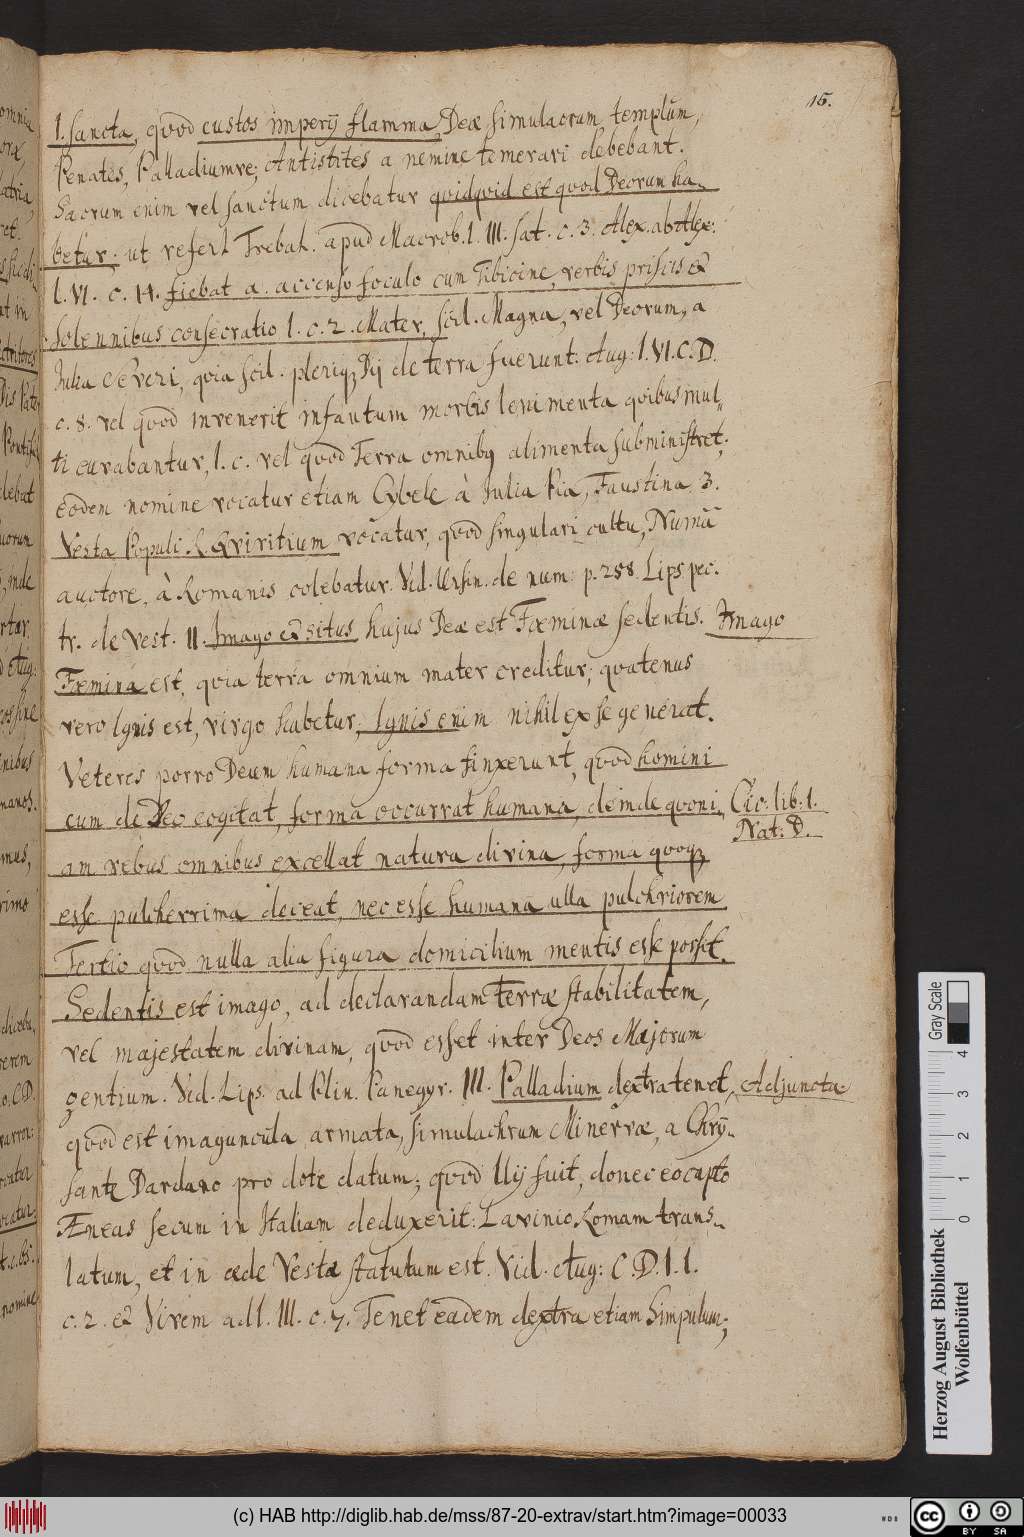 15.
1. Sancta, qvod custos imperij flamma, Deæ simulacrum templũm,
Penates, Palladiumve; Antistites a nemine temerari debebant.
Sacrum enim vel sanctum dicebatur qvidqvid est qvod Deorum ha-
betur, ut refert Trebat. apud Macrob. l. III. Sat. c. 3. Alex. ab Alex:
l. VI. c. 14. fiebat a. accenso foculo cum Tibicine, verbis priscis &
solennibus consecratio l. c. 2. Mater, scil. Magna, vel Deorum, a
Julia Severi, qvia scil. pleriqz Dij de terra fuerunt. Aug: l. VI. C. D.
c. 8. vel qvod invenerit infantum morbis lenimenta qvibus mul-
ti curabantur, l. c. vel qvod Terra omnibq alimenta subministret,
eodem nomine vocatur etiam Cybele à Julia Pia, Faustina. 3.
Vesta Populi R. Qviritium vocatur, qvod singulari cultu, Numâ
auctore, à Romanis colebatur. Vid. Ursin. de num: p. 288. Lips. pec.
tr. de Vest. II. Imago & situs hujus Deæ est Fæminæ sedentis. Imago
Fæmina est, qvia terra omnium mater creditur; qvatenus
vero Ignis est, virgo habetur; Ignis enim nihil ex se generat.
Veteres porro Deum humana forma finxerunt, qvod homini
cum de Deo cogitat, forma occurrat humana, deinde qvoni- Cic: lib: 1.
Nat: D.
am rebus omnibus excellat natura divina, forma qvoqz
esse pulcherrima deceat, nec esse humana ulla pulchriorem
Tertio qvod nulla alia figura domicilium mentis esse posset.
Sedentis est imago, ad declarandam Terræ stabilitatem,
vel majestatem divinam, qvod esset inter Deos Majorum
gentium. Vid. Lips. ad Plin. Panegyr. III. Palladium dextra tenet, Adjuncta
qvod est imaguncula armata, simulachrum Minervæ, a Chrÿ-
sante Dardano pro dote datum; qvod Ilij fuit, donec eo capto
Æneas secum in Italiam deduxerit: Lavinio Romam trans-
latum, et in æde Vestæ statutum est. Vid. Aug: C. D. l. 1.
c. 2. & Vivem ad l. III. c. 7. Tenet eadem dextra etiam Simpulum;
Gray Scale
0 1 2 3 4
Herzog August Bibliothek
Wolfenbüttel
(c) HAB http://diglib.hab.de/mss/87-20-extrav/start.htm?image=00033
cc BY SA